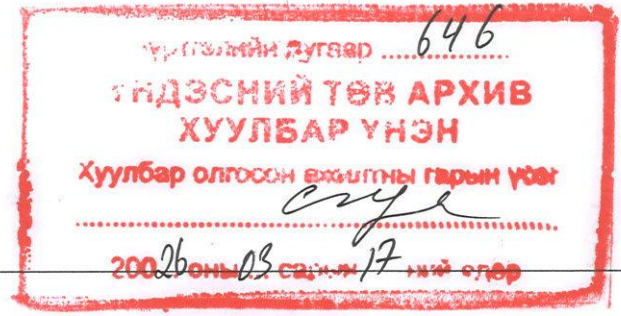 Бүртгэлийн дугаар ..... 646
ҮНДЭСНИЙ ТӨВ АРХИВ
ХУУЛБАР ҮНЭН
Хуулбар олгосон ажилтны гарын үсэг
20026 оны 03 сарын 17 ний өдөр